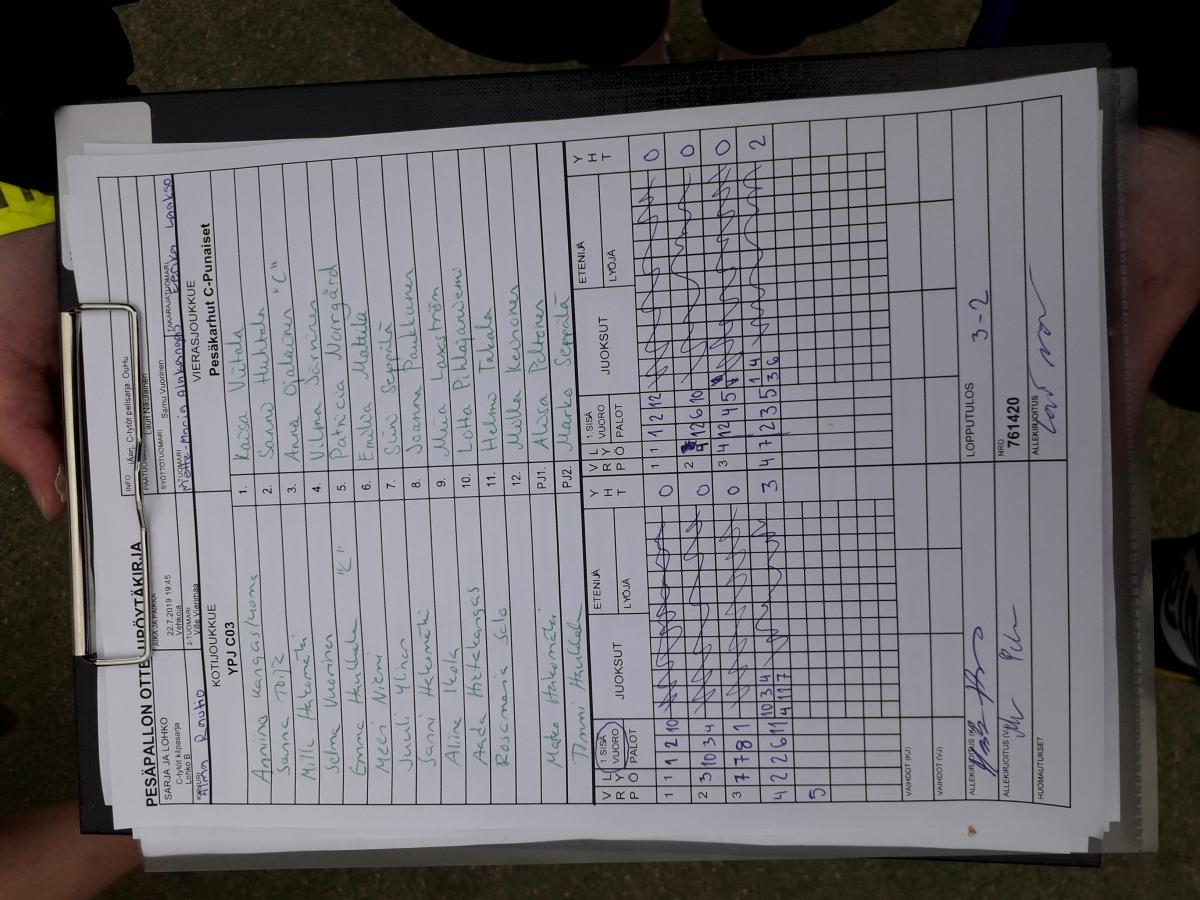 PESÄPALLON OTTELUPÖYTÄKIRJA
INFO
C-tytöt pelisarja: OuHu
SARJA JA LOHKO
C-tytöt kilpasarja
Lohko B
AIKA JA PAIKKA
22.7.2019 19.45
Vehkoja
PÄÄTUOMARI
Lauri Naulainen
2-TUOMARI
Ville Vierimaa
SYÖTTÖTUOMARI
Samu Vuorinen
TAKARAJATUOMARI
KIRJURI
Rautio
KOTIJOUKKUE
YPJ C03
VIERASJOUKKUE
Pesäkarhut C-Punaiset
Anniina Kangasluoma
1. Kaisa Viitala
2. Sanni Huhtala
Milla Hakomäki
3. Anna Ojaleinen "C"
Selma Vuorinen
4. Vilma Järvinen
Emma Haukkala "C"
5. Patricia Norrgård
Meeri Niemi
6. Emilia Mattila
Juuli Ylinen
7. Siiri Seppälä
Sanni Hakomäki
8. Joanna Paukkunen
Aliina Ikola
9. Mea Laxström
Aada Hietakangas
10. Lotta Pihlajaniemi
Rosamaria Salo
11. Helmi Takala
12. Milla Keisonen
Marko Hakomäki
PJ1. Aliisa Peltonen
Tommi Haukkala
PJ2. Marko Seppälä
V R P Y Ö 1.SISÄ VUORO PALOT JUOKSUT ETENIJÄ LYÖJÄ Y H T
V R P L Y Ö 1.SISÄ VUORO PALOT JUOKSUT ETENIJÄ LYÖJÄ Y H T
1 1 1 2 10 0
1 1 1 2 12 0
2 3 10 3 4 0
2 4 12 6 10 0
3 7 7 8 1 0
3 4 12 4 5 0
4 2 2 6 11 10 3 4 3
4 11 7
4 7 2 3 5 1 4 2
3 6
5
VAIHDOT (KJ)
VAIHDOT (VJ)
ALLEKIRJOITUS (KJ)
LOPPUTULOS 3-2
ALLEKIRJOITUS (VJ)
NRO
761420
HUOMAUTUKSET
ALLEKIRJOITUS